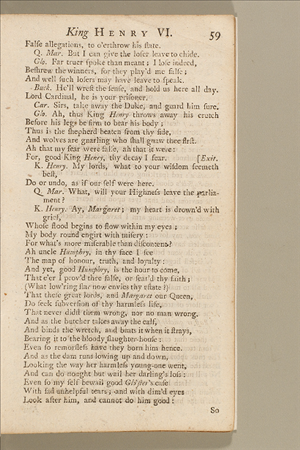 King HENRY VI. 59
False allegations, to o'erthrow his state.
Q. Mar. But I can give the loser leave to chide.
Glo. Far truer spoke than meant; I lose indeed,
Beshrew the winners, for they play'd me false;
And well such losers may have leave to speak.
Buck. He'll wrest the sense, and hold us here all day.
Lord Cardinal, he is your prisoner.
Car. Sirs, take away the Duke, and guard him sure.
Glo. Ah, thus King Henry throws away his crutch
Before his legs be firm to bear his body:
Thus is the shepherd beaten from thy side,
And wolves are gnarling who shall gnaw thee first.
Ah that my fear were false, ah that it were!
For, good King Henry, thy decay I fear. [Exit.
K. Henry. My lords, what to your wisdom seemeth
best,
Do or undo, as if our self were here.
Q. Mar. What, will your Highness leave the parlia-
ment?
K. Henry. Ay, Margaret; my heart is drown'd with
grief,
Whose flood begins to flow within my eyes;
My body round engirt with misery:
For what's more miserable than discontent?
Ah uncle Humphry, in thy face I see
The map of honour, truth, and loyalty:
And yet, good Humphry, is the hour to come,
That e'er I prov'd thee false, or fear'd thy faith;
(What low'ring star now envies thy estate?)
That these great lords, and Margaret our Queen,
Do seek subversion of thy harmless life,
That never didst them wrong, nor no man wrong.
And as the butcher takes away the calf,
And binds the wretch, and beats it when it strays,
Bearing it to the bloody slaughter-house:
Even so remorsless have they born him hence.
And as the dam runs lowing up and down,
Looking the way her harmless young one went,
And can do nought but wail her darling's loss:
Even so my self bewail good Glo'ster's case
With sad unhelpful tears; and with dim'd eyes
Look after him, and cannot do him good:
So